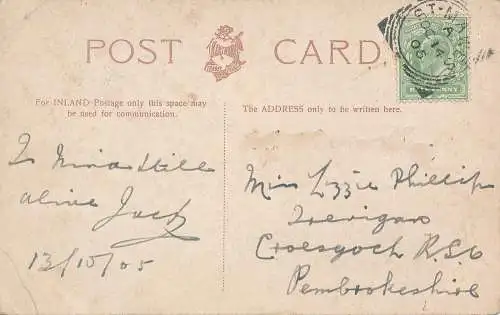 POST CARD
For INLAND Postage only this space may
be used for communication.
The ADDRESS only to be written here.
alive Jack
13/10/05
Miss Lizzie Phillips
Trerigan
Croesgoch R.S.O
Pembrokeshire
ST. MA
A
OC 14
05
HALFPENNY